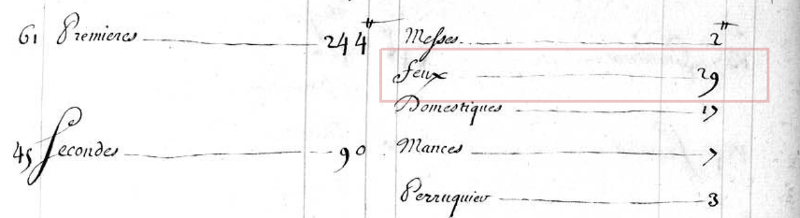 61 Premieres 244 ₶ Messes 2 ₶
Feux 29
Domestiques 17
45 Secondes 90 Mances 7
Perruquier 3